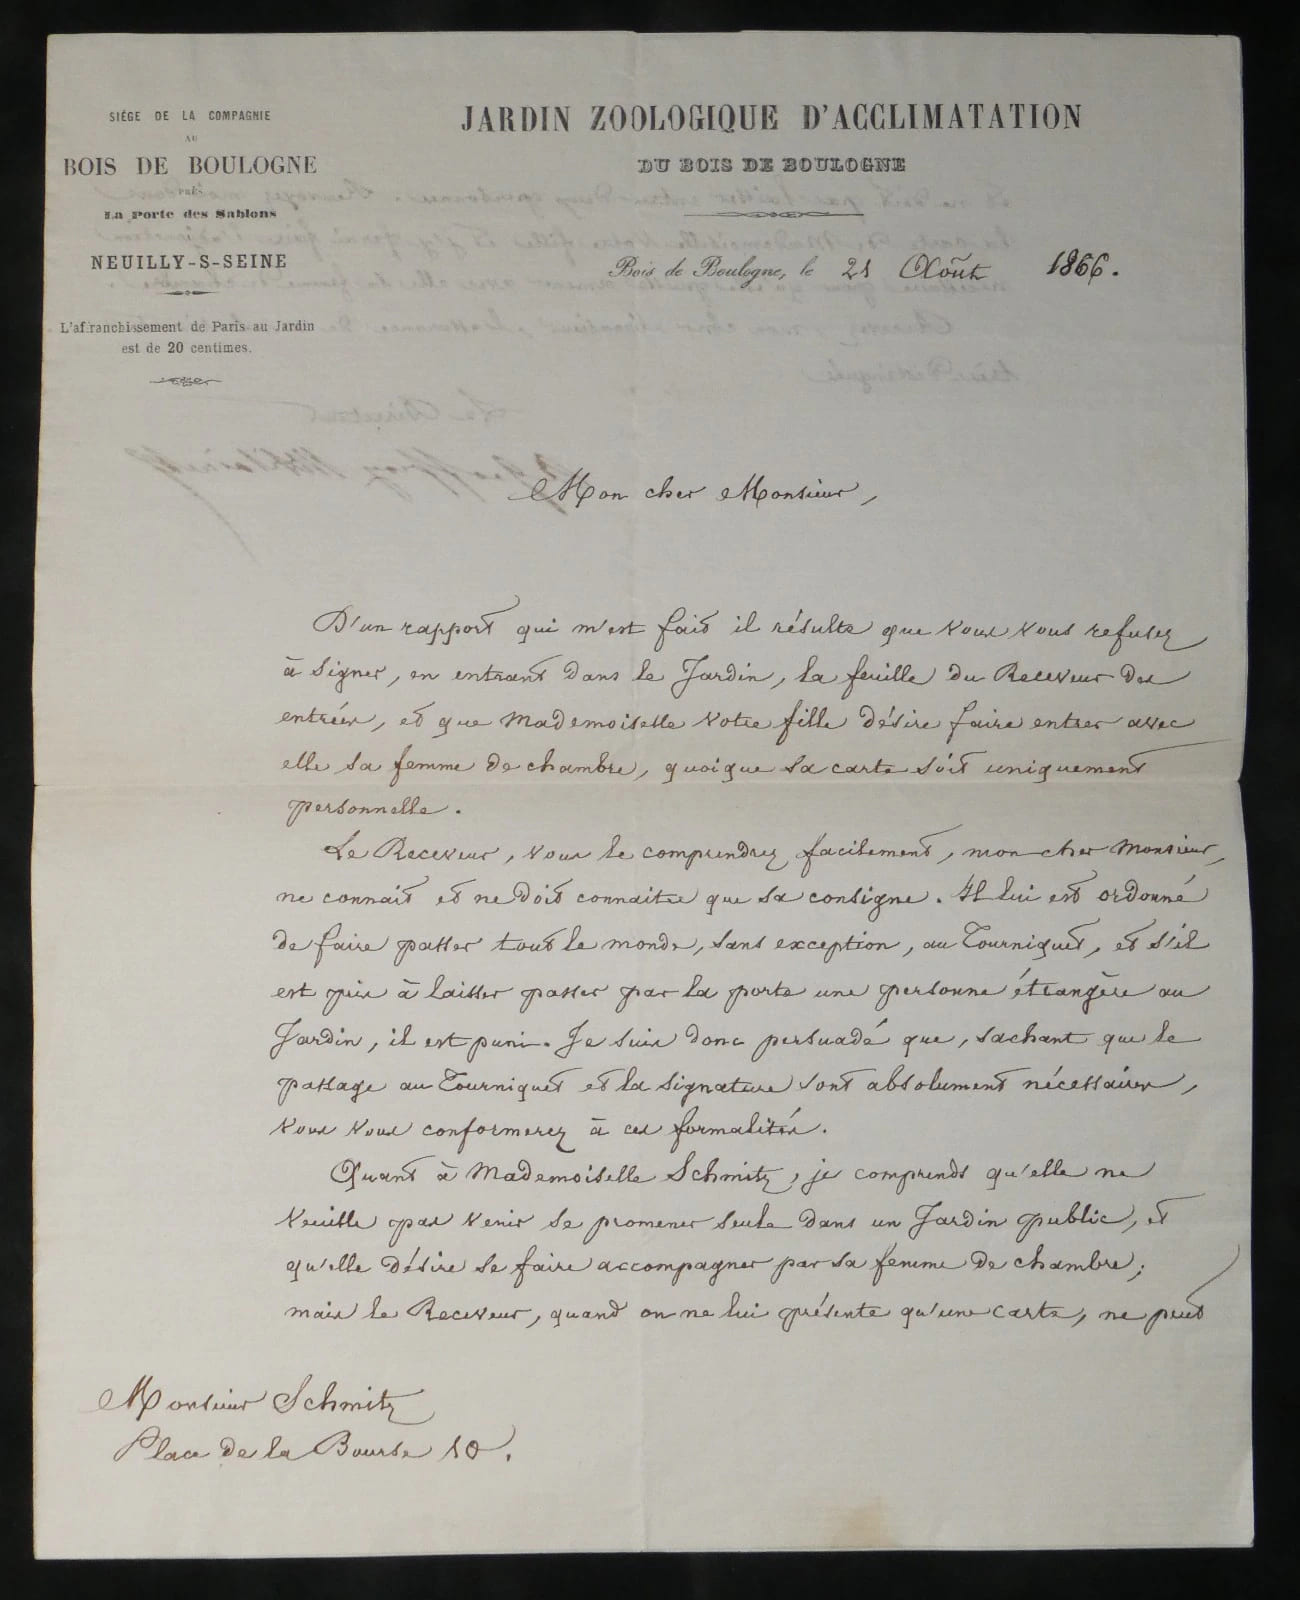 SIÉGE DE LA COMPAGNIE
AU
BOIS DE BOULOGNE
PRÈS
La Porte des Sablons
NEUILLY-S-SEINE
L'affranchissement de Paris au Jardin
est de 20 centimes.
JARDIN ZOOLOGIQUE D'ACCLIMATATION
DU BOIS DE BOULOGNE
Bois de Boulogne, le 21 Août 1866.
Mon cher Monsieur,
D'un rapport qui m'est fait il résulte que vous vous refusez
à signer, en entrant dans le Jardin, la feuille du Receveur des
entrées, et que Mademoiselle votre fille désire faire entrer avec
elle sa femme de chambre, quoique sa carte soit uniquement
personnelle.
Le Receveur, vous le comprendrez facilement, mon cher Monsieur,
ne connait et ne doit connaitre que sa consigne. Il lui est ordonné
de faire passer tout le monde, sans exception, au Tourniquet, et s'il
est pris à laisser passer par la porte une personne étrangère au
Jardin, il est puni. Je suis donc persuadé que, sachant que le
passage au Tourniquet et la signature sont absolument nécessaires,
vous vous conformerez à ces formalités.
Quant à Mademoiselle Schmitz, je comprends qu'elle ne
veuille pas venir se promener seule dans un Jardin public, et
qu'elle désire se faire accompagner par sa femme de chambre;
mais le Receveur, quand on ne lui présente qu'une carte, ne peut
Monsieur Schmitz
Place de la Bourse 10.